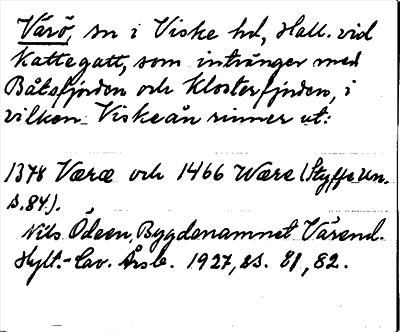 Värö, sn i Viske hd, Hall. vid
Kattegatt, som intränger med
Båtafjorden och Klosterfjorden, i
vilken Viskeån rinner ut:
1378 Væræ och 1466 Wære (Styffe Un.
s. 84).
Nils Ödeen, Bygdenamnet Värend.
Hylt.-Cav. Årsb. 1927, ss. 81, 82.